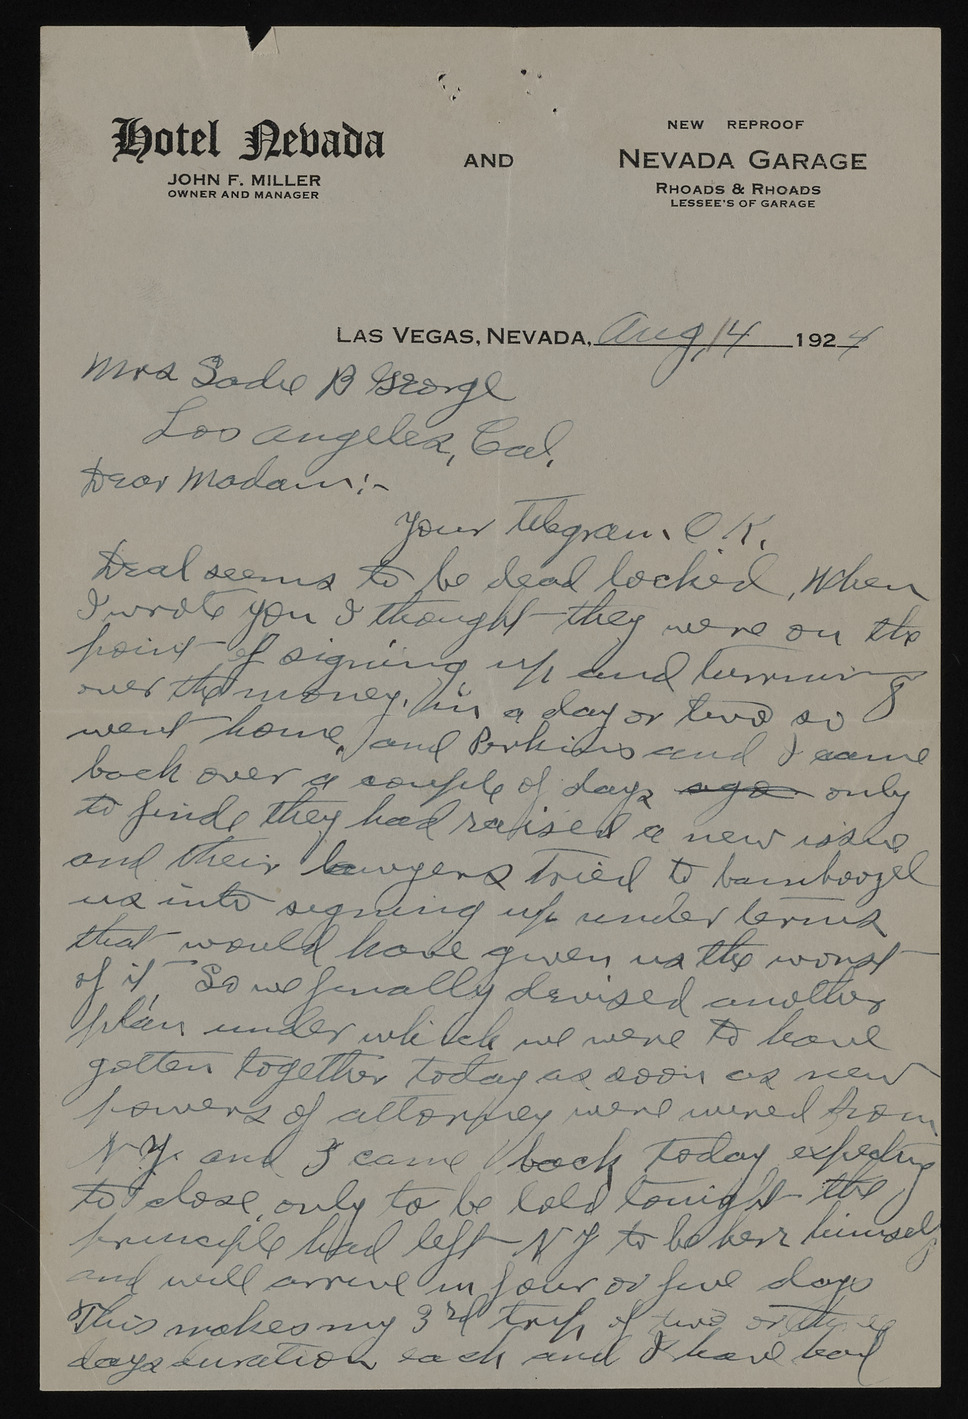 Hotel Nevada
JOHN F. MILLER
OWNER AND MANAGER
AND
NEW REPROOF
NEVADA GARAGE
RHOADS & RHOADS
LESSEE'S OF GARAGE
LAS VEGAS, NEVADA, Aug, 14 1924
Mrs Sadie B George
Los Angeles, Cal.
Dear Madam:-
Your telegram O.K.
Deal seems to be dead locked, When
I wrote you I thought they were on the
point of signing up and turning
over the money, in a day or two so I
went home, and Perkins and I came
back over a couple of days ago only
to finde they had raised a new issue
and their lawyers tried to bamboozel
us into signing up under terms
that would have given us the worst
of it So we finally devised another
plan under which we were to have
gotten together today as soon as new
powers of attorney were wired from
N Y. and I came back today expecting
to close, only to be told tonight the
principle had left N Y to be here himself
and will arrive in four or five days
This makes my 3rd trip of two or three
days duration each and I have had